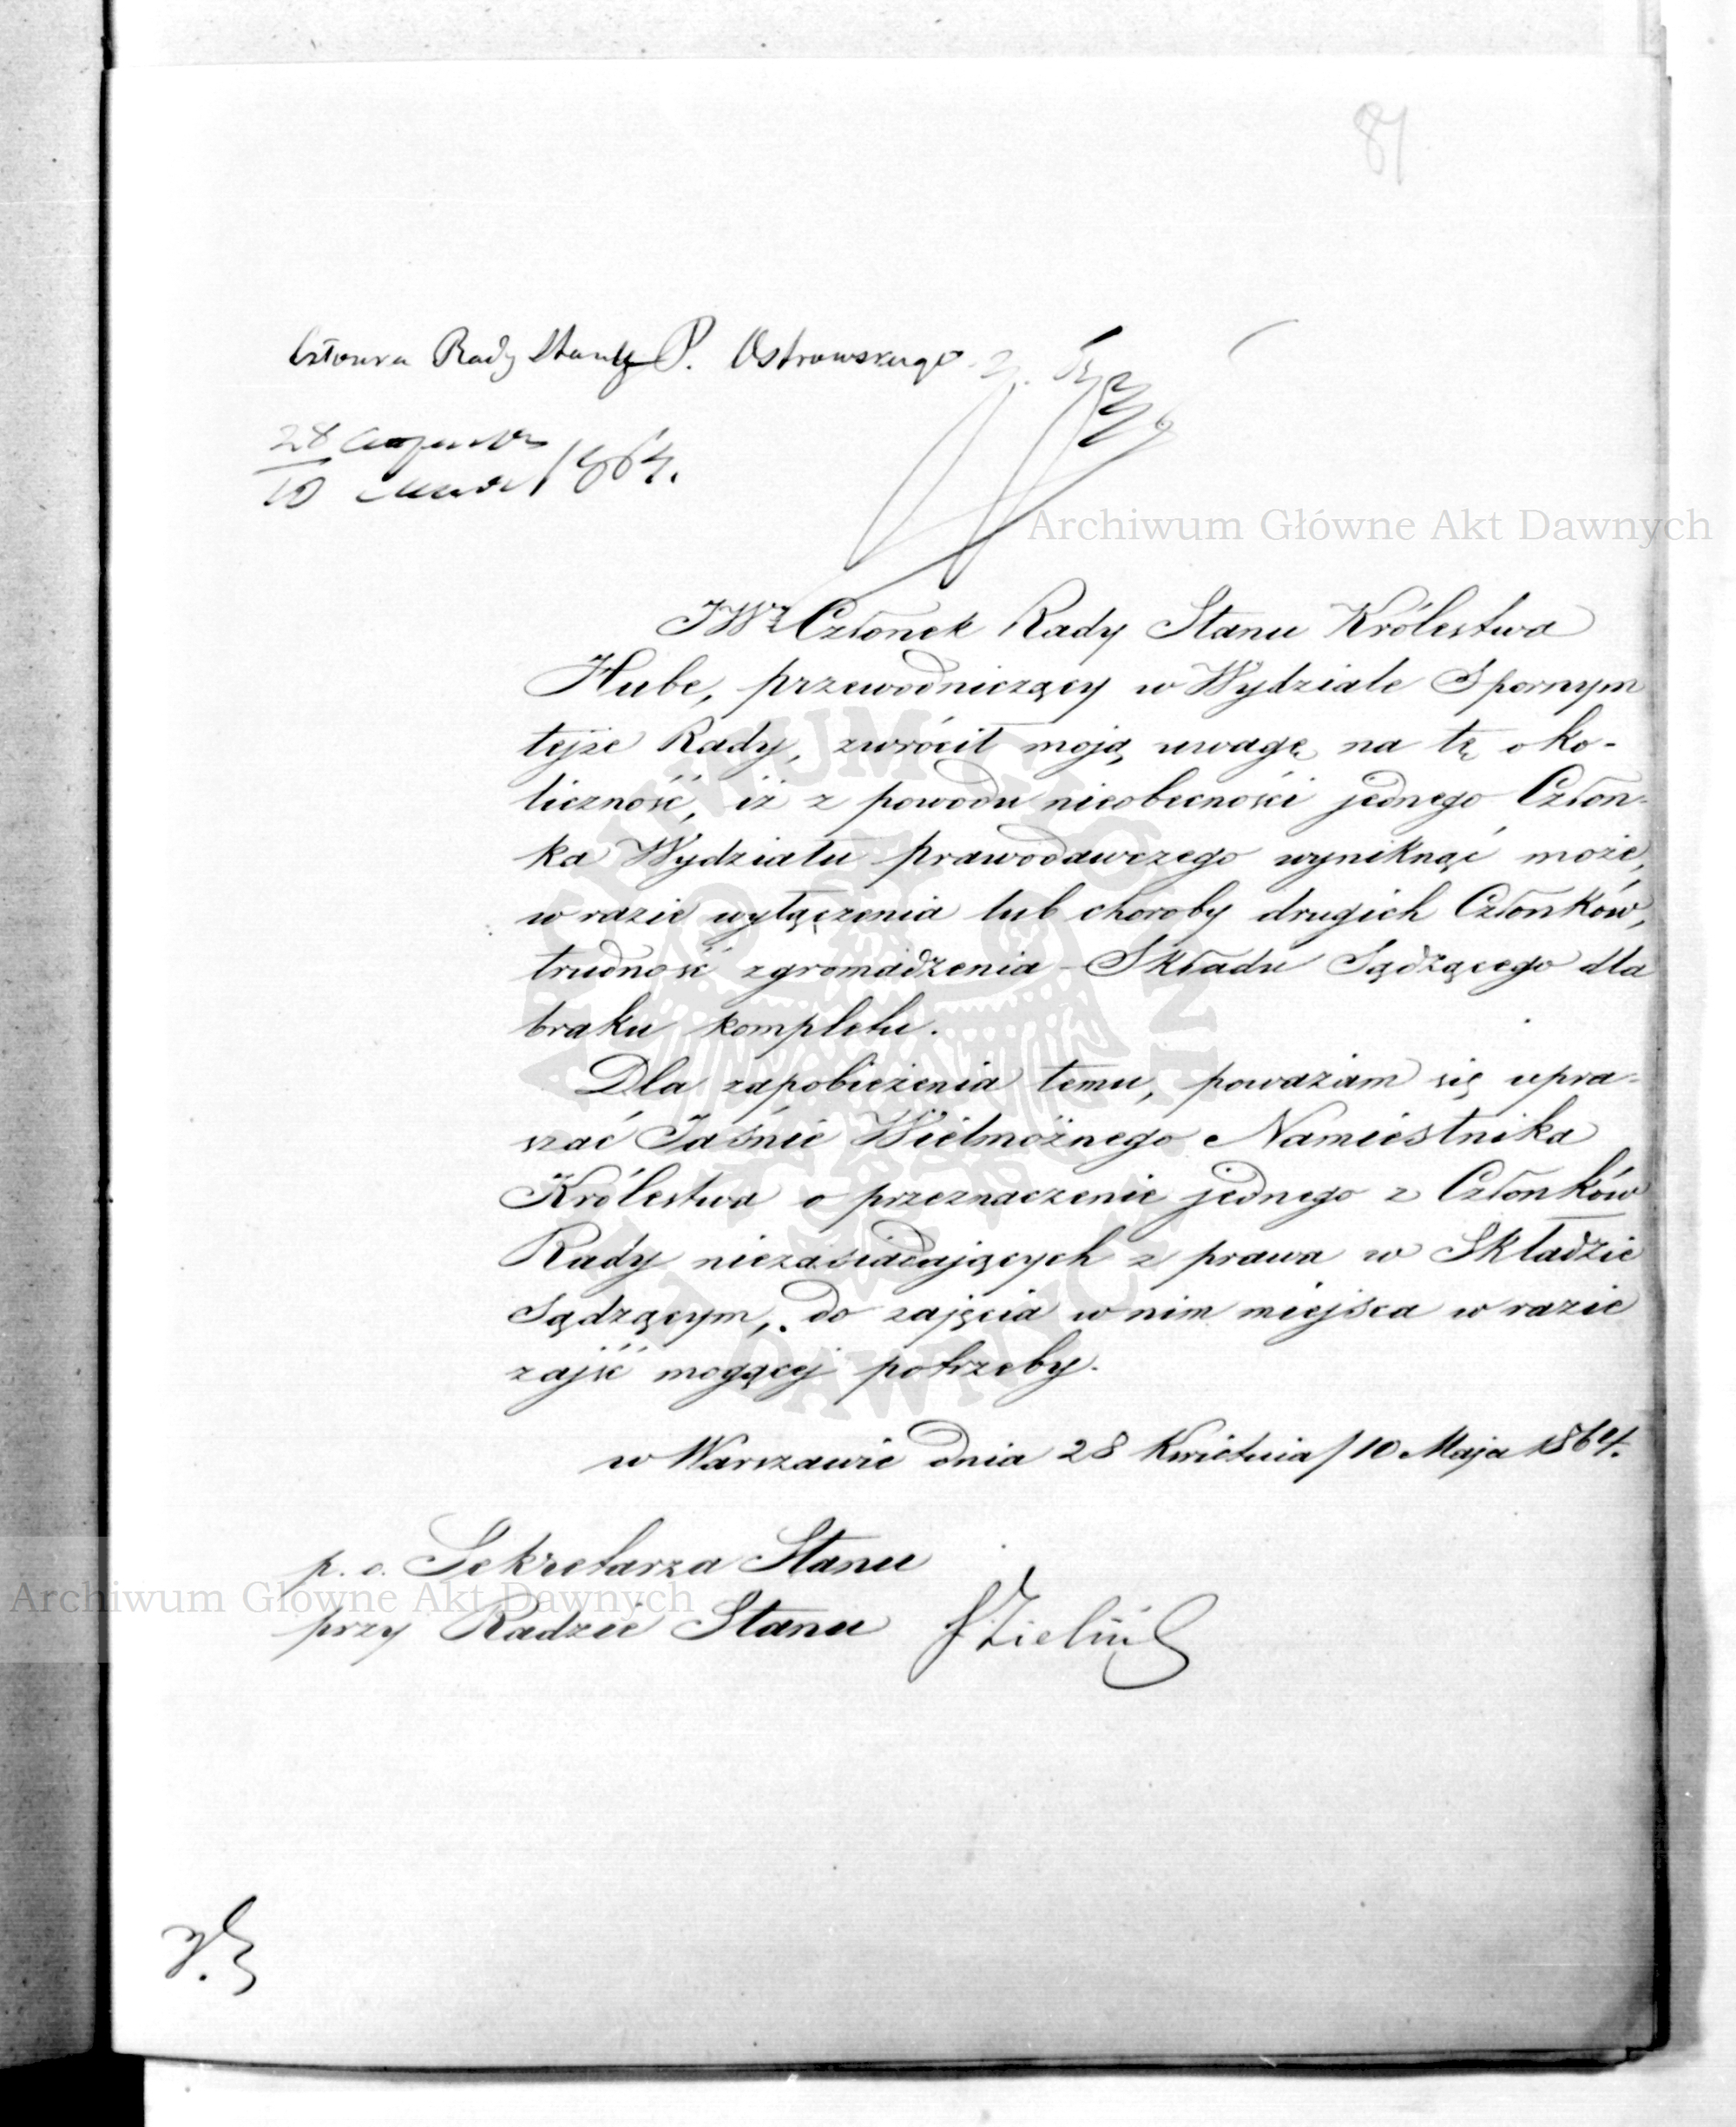 81
Członka Rady Stanu P. Ostrowskiego
28
10 1864.
Archiwum Główne Akt Dawnych
JWż Członek Rady Stanu Królestwa
Hube, przewodniczący w Wydziale Spornym
tejże Rady, zwrócił moją uwagę na tę oko-
liczność, iż z powodu nieobecności jednego Człon-
ka Wydziału prawodawczego wyniknąć może,
w razie wyłączenia lub choroby drugich Członków,
trudność zgromadzenia Składu Sądzącego dla
braku kompletu.
Dla zapobieżenia temu, poważam się upra-
szać Jaśnie Wielmożnego Namiestnika
Królestwa o przeznaczenie jednego z Członków
Rady niezasiadających z prawa w Składzie
Sądzącym, do zajęcia w nim miejsca w razie
zajść mogącej potrzeby.
w Warszawie dnia 28 Kwietnia/10 Maja 1864.
p. o. Sekretarza Stanu
Archiwum Główne Akt Dawnych
przy Radzie Stanu